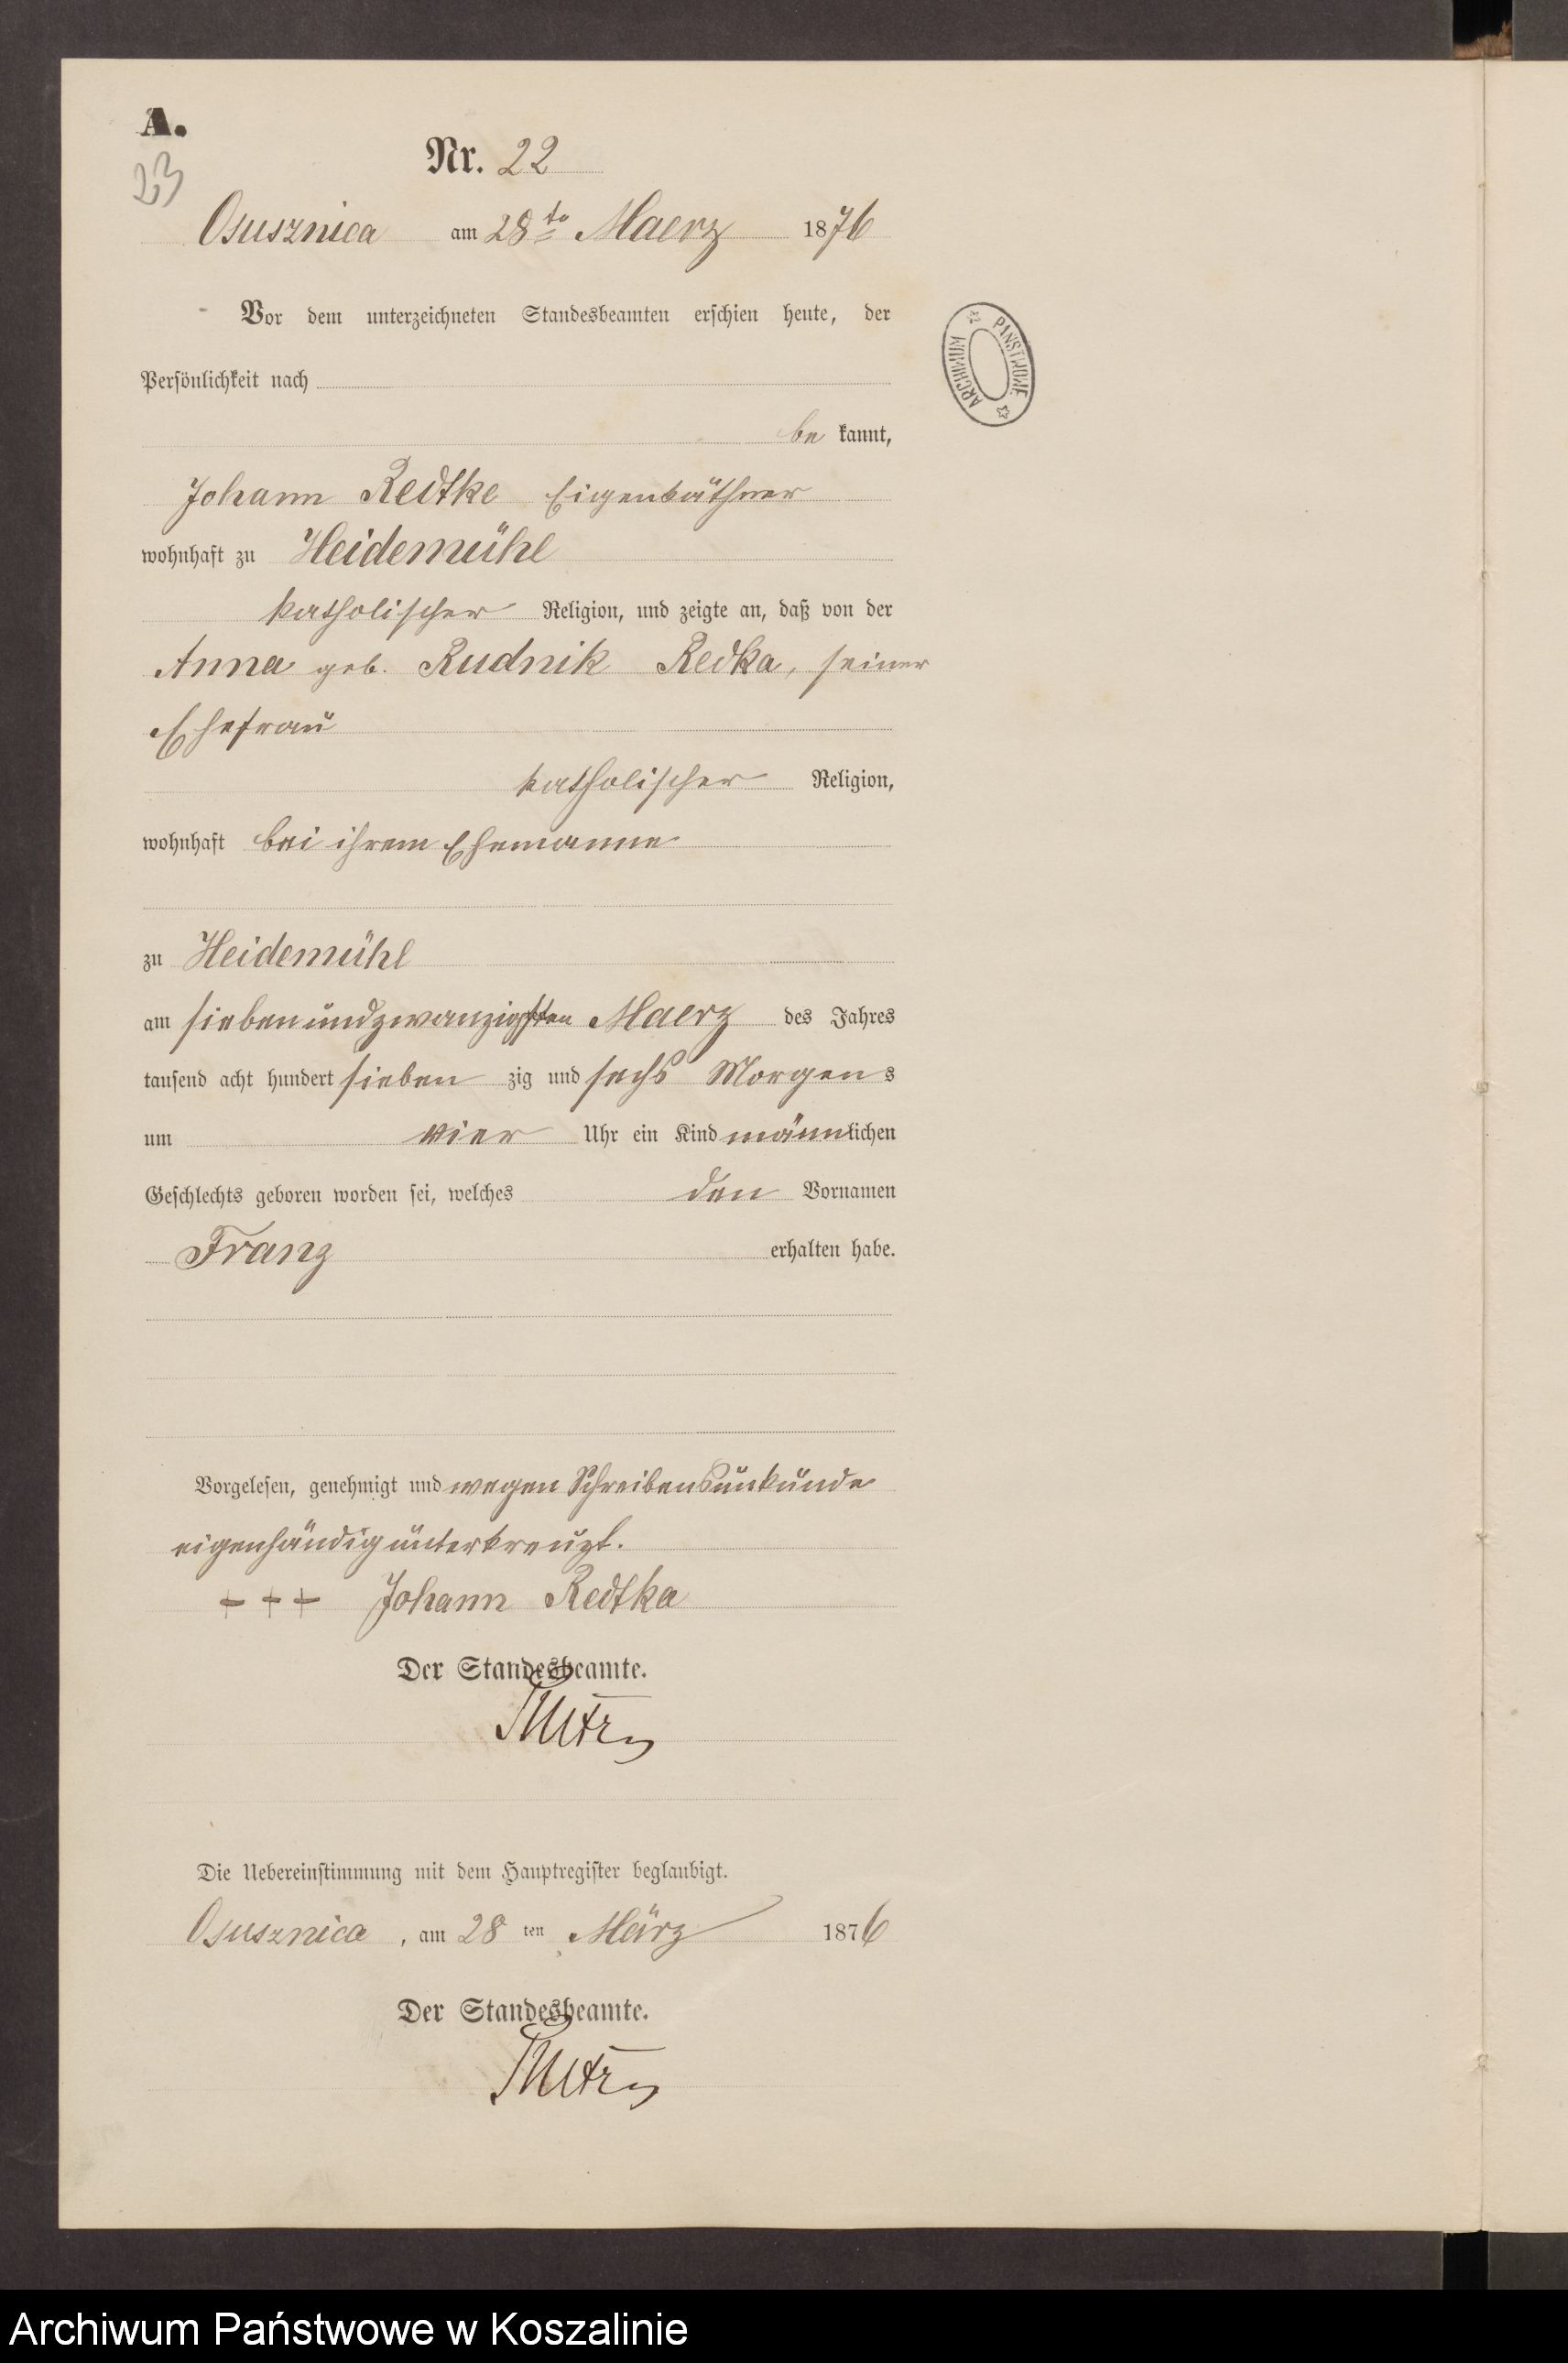 A.
23
Nr. 22
Osusznica am 28te Maerz 1876
Vor dem unterzeichneten Standesbeamten erschien heute, der
Persönlichkeit nach
be kannt,
Johann Redtke Eigenkäthner
wohnhaft zu Heidemühl
katholischer Religion, und zeigte an, daß von der
Anna geb. Rudnik Redka, seiner
Ehefrau
katholischer Religion,
wohnhaft bei ihrem Ehemanne
zu Heidemühl
am siebenundzwanzigsten Maerz des Jahres
tausend acht hundert sieben zig und sechs Morgens
um vier Uhr ein Kind männlichen
Geschlechts geboren worden sei, welches den Vornamen
Franz erhalten habe.
Vorgelesen, genehmigt und wegen Schreibensunkunde
eigenhändig unterkreuzt.
+ + + Johann Redtka
Der Standesbeamte.
Die Uebereinstimmung mit dem Hauptregister beglaubigt.
Osusznica, am 28 ten März 1876
Der Standesbeamte.
ARCHIWUM PAŃSTWOWE
Archiwum Państwowe w Koszalinie